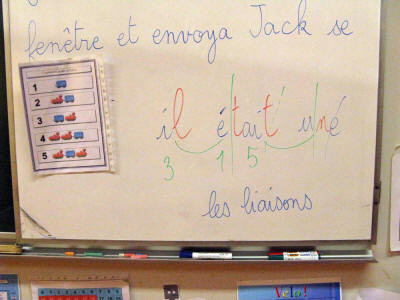 fenêtre et envoya Jack se
1
2
3
4
5
il était uné
3 1 5
les liaisons
Velo!